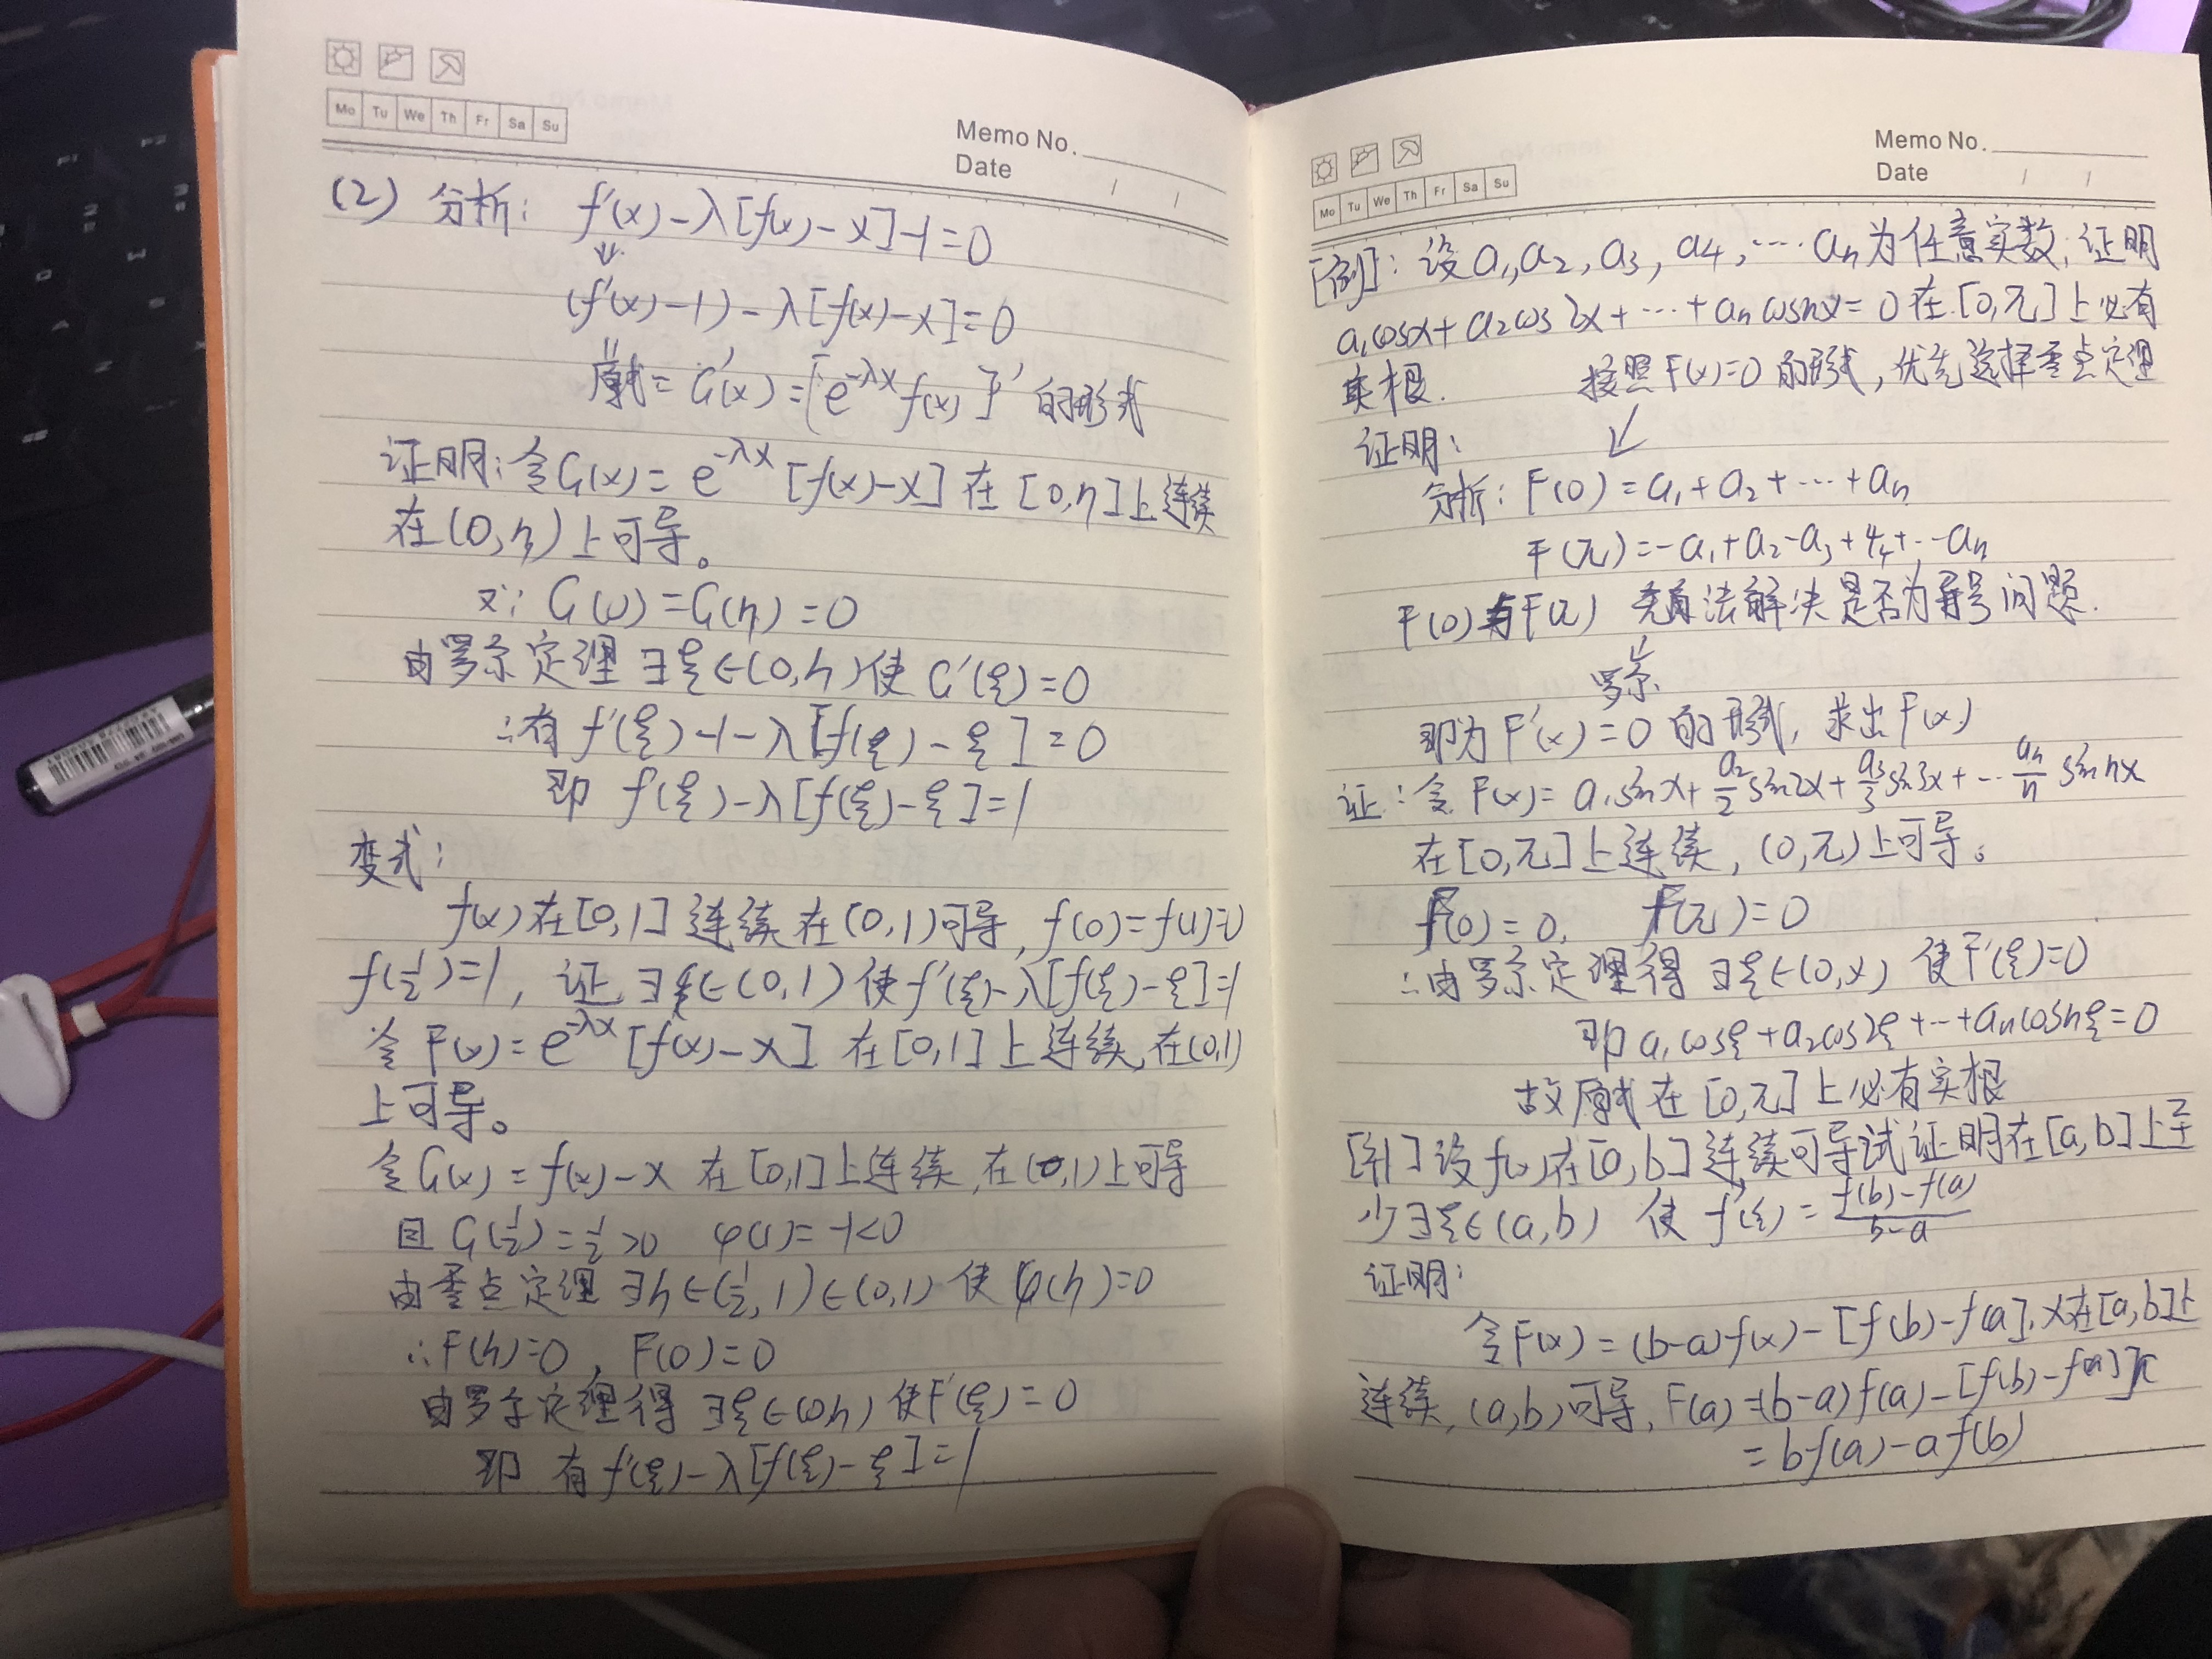 Mo Tu We Th Fr Sa Su
Memo No.
Date / /
(2) 分析: f'(x)-λ[f(x)-x]-1=0
(f'(x)-1)-λ[f(x)-x]=0
原式=G'(x)=[e^{-λx}f(x)]'的形式
证明:令G(x)=e^{-λx}[f(x)-x]在[0,η]上连续
在(0,η)上可导。
又∵G(0)=G(η)=0
由罗尔定理∃ξ∈(0,η)使G'(ξ)=0
∴有f'(ξ)-1-λ[f(ξ)-ξ]=0
即 f'(ξ)-λ[f(ξ)-ξ]=1
变式:
f(x)在[0,1]连续在(0,1)可导,f(0)=f(1)=0
f(1/2)=1,证∃ξ∈(0,1)使f'(ξ)-λ[f(ξ)-ξ]=1
令F(x)=e^{-λx}[f(x)-x]在[0,1]上连续,在(0,1)
上可导。
令G(x)=f(x)-x 在[0,1]上连续,在(0,1)上可导
且G(1/2)=1/2>0 φ(1)=-1<0
由零点定理∃η∈(1/2,1)∈(0,1)使φ(η)=0
∴F(η)=0,F(0)=0
由罗尔定理得∃ξ∈(0,η)使F'(ξ)=0
即 有f'(ξ)-λ[f(ξ)-ξ]=1
Memo No.
Date / /
Mo Tu We Th Fr Sa Su
[例]:设a₁,a₂,a₃,a₄,…aₙ为任意实数,证明
a₁cosx+a₂cos2x+…+aₙcosnx=0在[0,π]上必有
实根. 按照F(x)=0的形式,优先选择零点定理
证明:
分析:F(0)=a₁+a₂+…+aₙ
F(π)=-a₁+a₂-a₃+a₄+…aₙ
F(0)与F(π) 无法解决是否为异号问题.
罗尔
即为F'(x)=0的形式,求出F(x)
证:令F(x)=a₁sinx+a₂/2 sin2x+a₃/3 sin3x+…aₙ/n sinnx
在[0,π]上连续,(0,π)上可导。
F(0)=0, F(π)=0
∴由罗尔定理得∃ξ∈(0,x)使F'(ξ)=0
即a₁cosξ+a₂cos2ξ+…+aₙcosnξ=0
故原式在[0,π]上必有实根
设f(x)在[a,b]连续可导试证明在[a,b]上至
少∃ξ∈(a,b) 使f'(ξ)=f(b)-f(a)/b-a
证明:
令F(x)=(b-a)f(x)-[f(b)-f(a)].x在[a,b]上
连续,(a,b)可导,F(a)=(b-a)f(a)-[f(b)-f(a)]
=bf(a)-af(b)